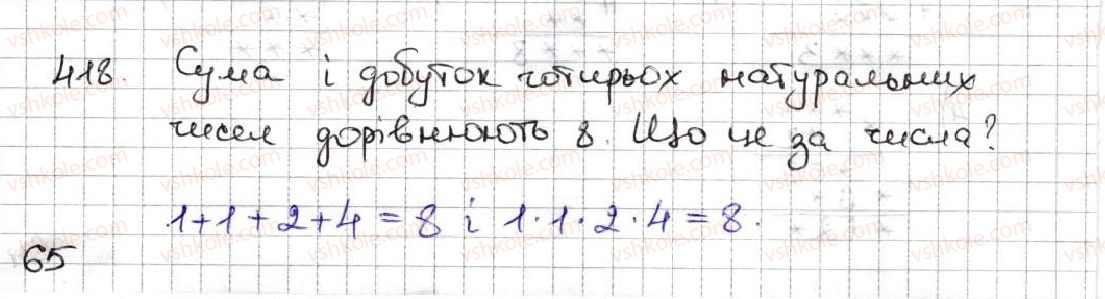 418. Сума і добуток чотирьох натуральних
чисел дорівнюють 8. Що це за числа?
1+1+2+4=8 і 1·1·2·4=8.
65